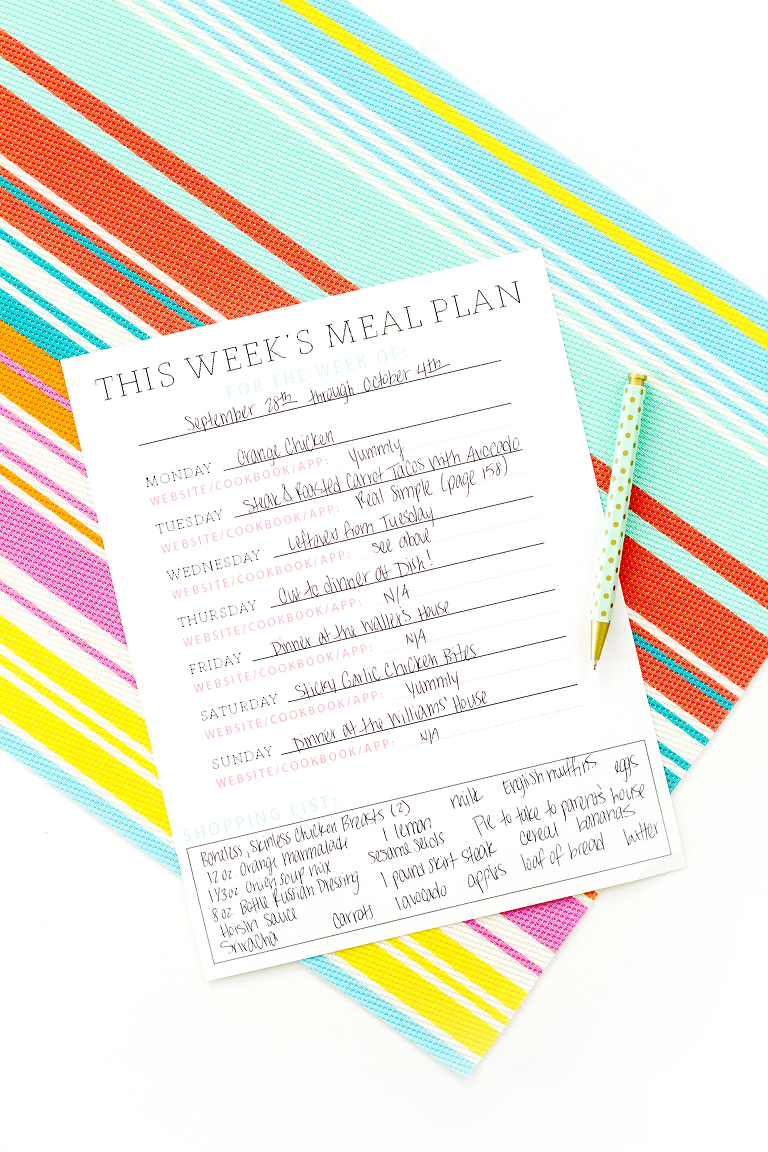 THIS WEEK'S MEAL PLAN
FOR THE WEEK OF:
September 28th through October 4th
MONDAY Orange Chicken
WEBSITE/COOKBOOK/APP: Yummly
TUESDAY Steak & Roasted Carrot Tacos with Avocado
WEBSITE/COOKBOOK/APP: Real Simple (page 158)
WEDNESDAY Leftovers from Tuesday
WEBSITE/COOKBOOK/APP: see above
THURSDAY Out to dinner at Dish!
WEBSITE/COOKBOOK/APP: N/A
FRIDAY Dinner at the Waller's House
WEBSITE/COOKBOOK/APP: N/A
SATURDAY Sticky Garlic Chicken Bites
WEBSITE/COOKBOOK/APP: Yummly
SUNDAY Dinner at the Williams' House
WEBSITE/COOKBOOK/APP: N/A
SHOPPING LIST:
Boneless, skinless Chicken Breasts (2) milk English muffins eggs
12 oz orange marmalade 1 lemon Pie to take to parent's house
1 1/3 oz onion soup mix sesame seeds cereal bananas
8 oz Bottle Russian Dressing 1 pound skirt steak loaf of bread butter
Hoisin sauce 1 avocado apples
Sriracha carrots